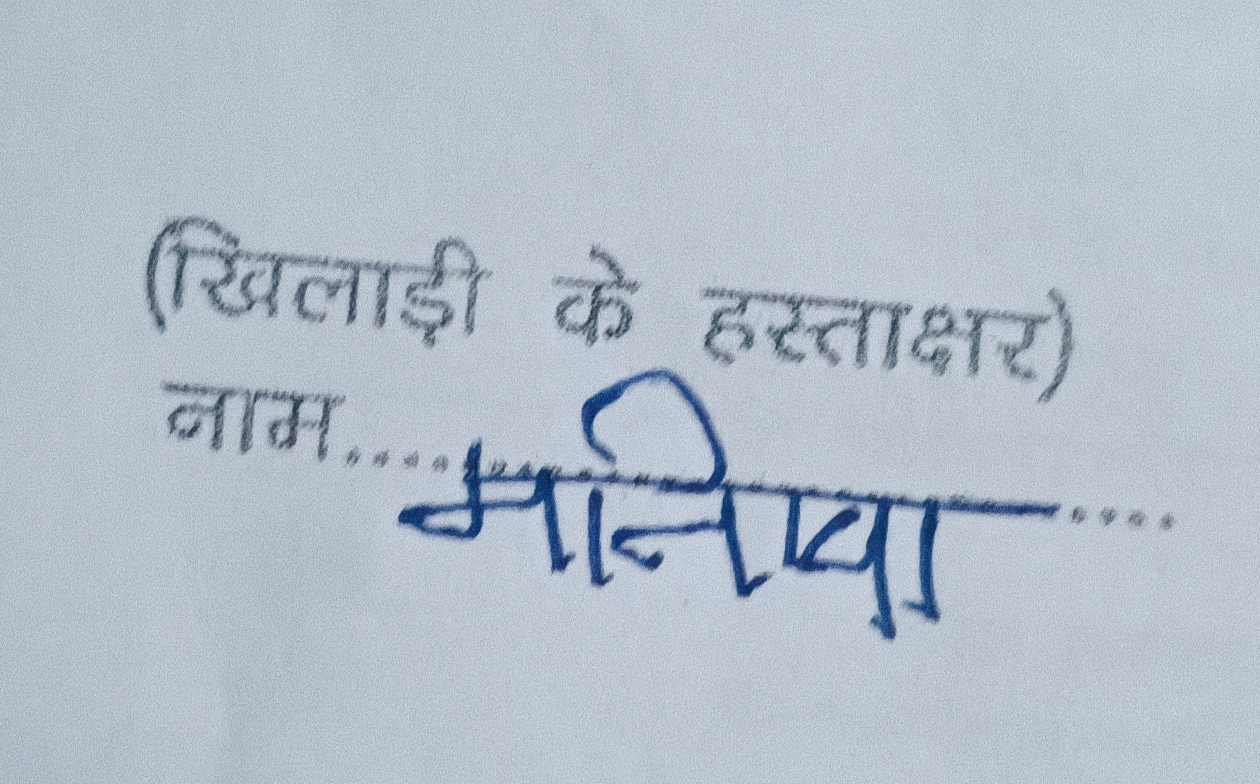 (खिलाड़ी के हस्ताक्षर)
नाम.....मनिषा....